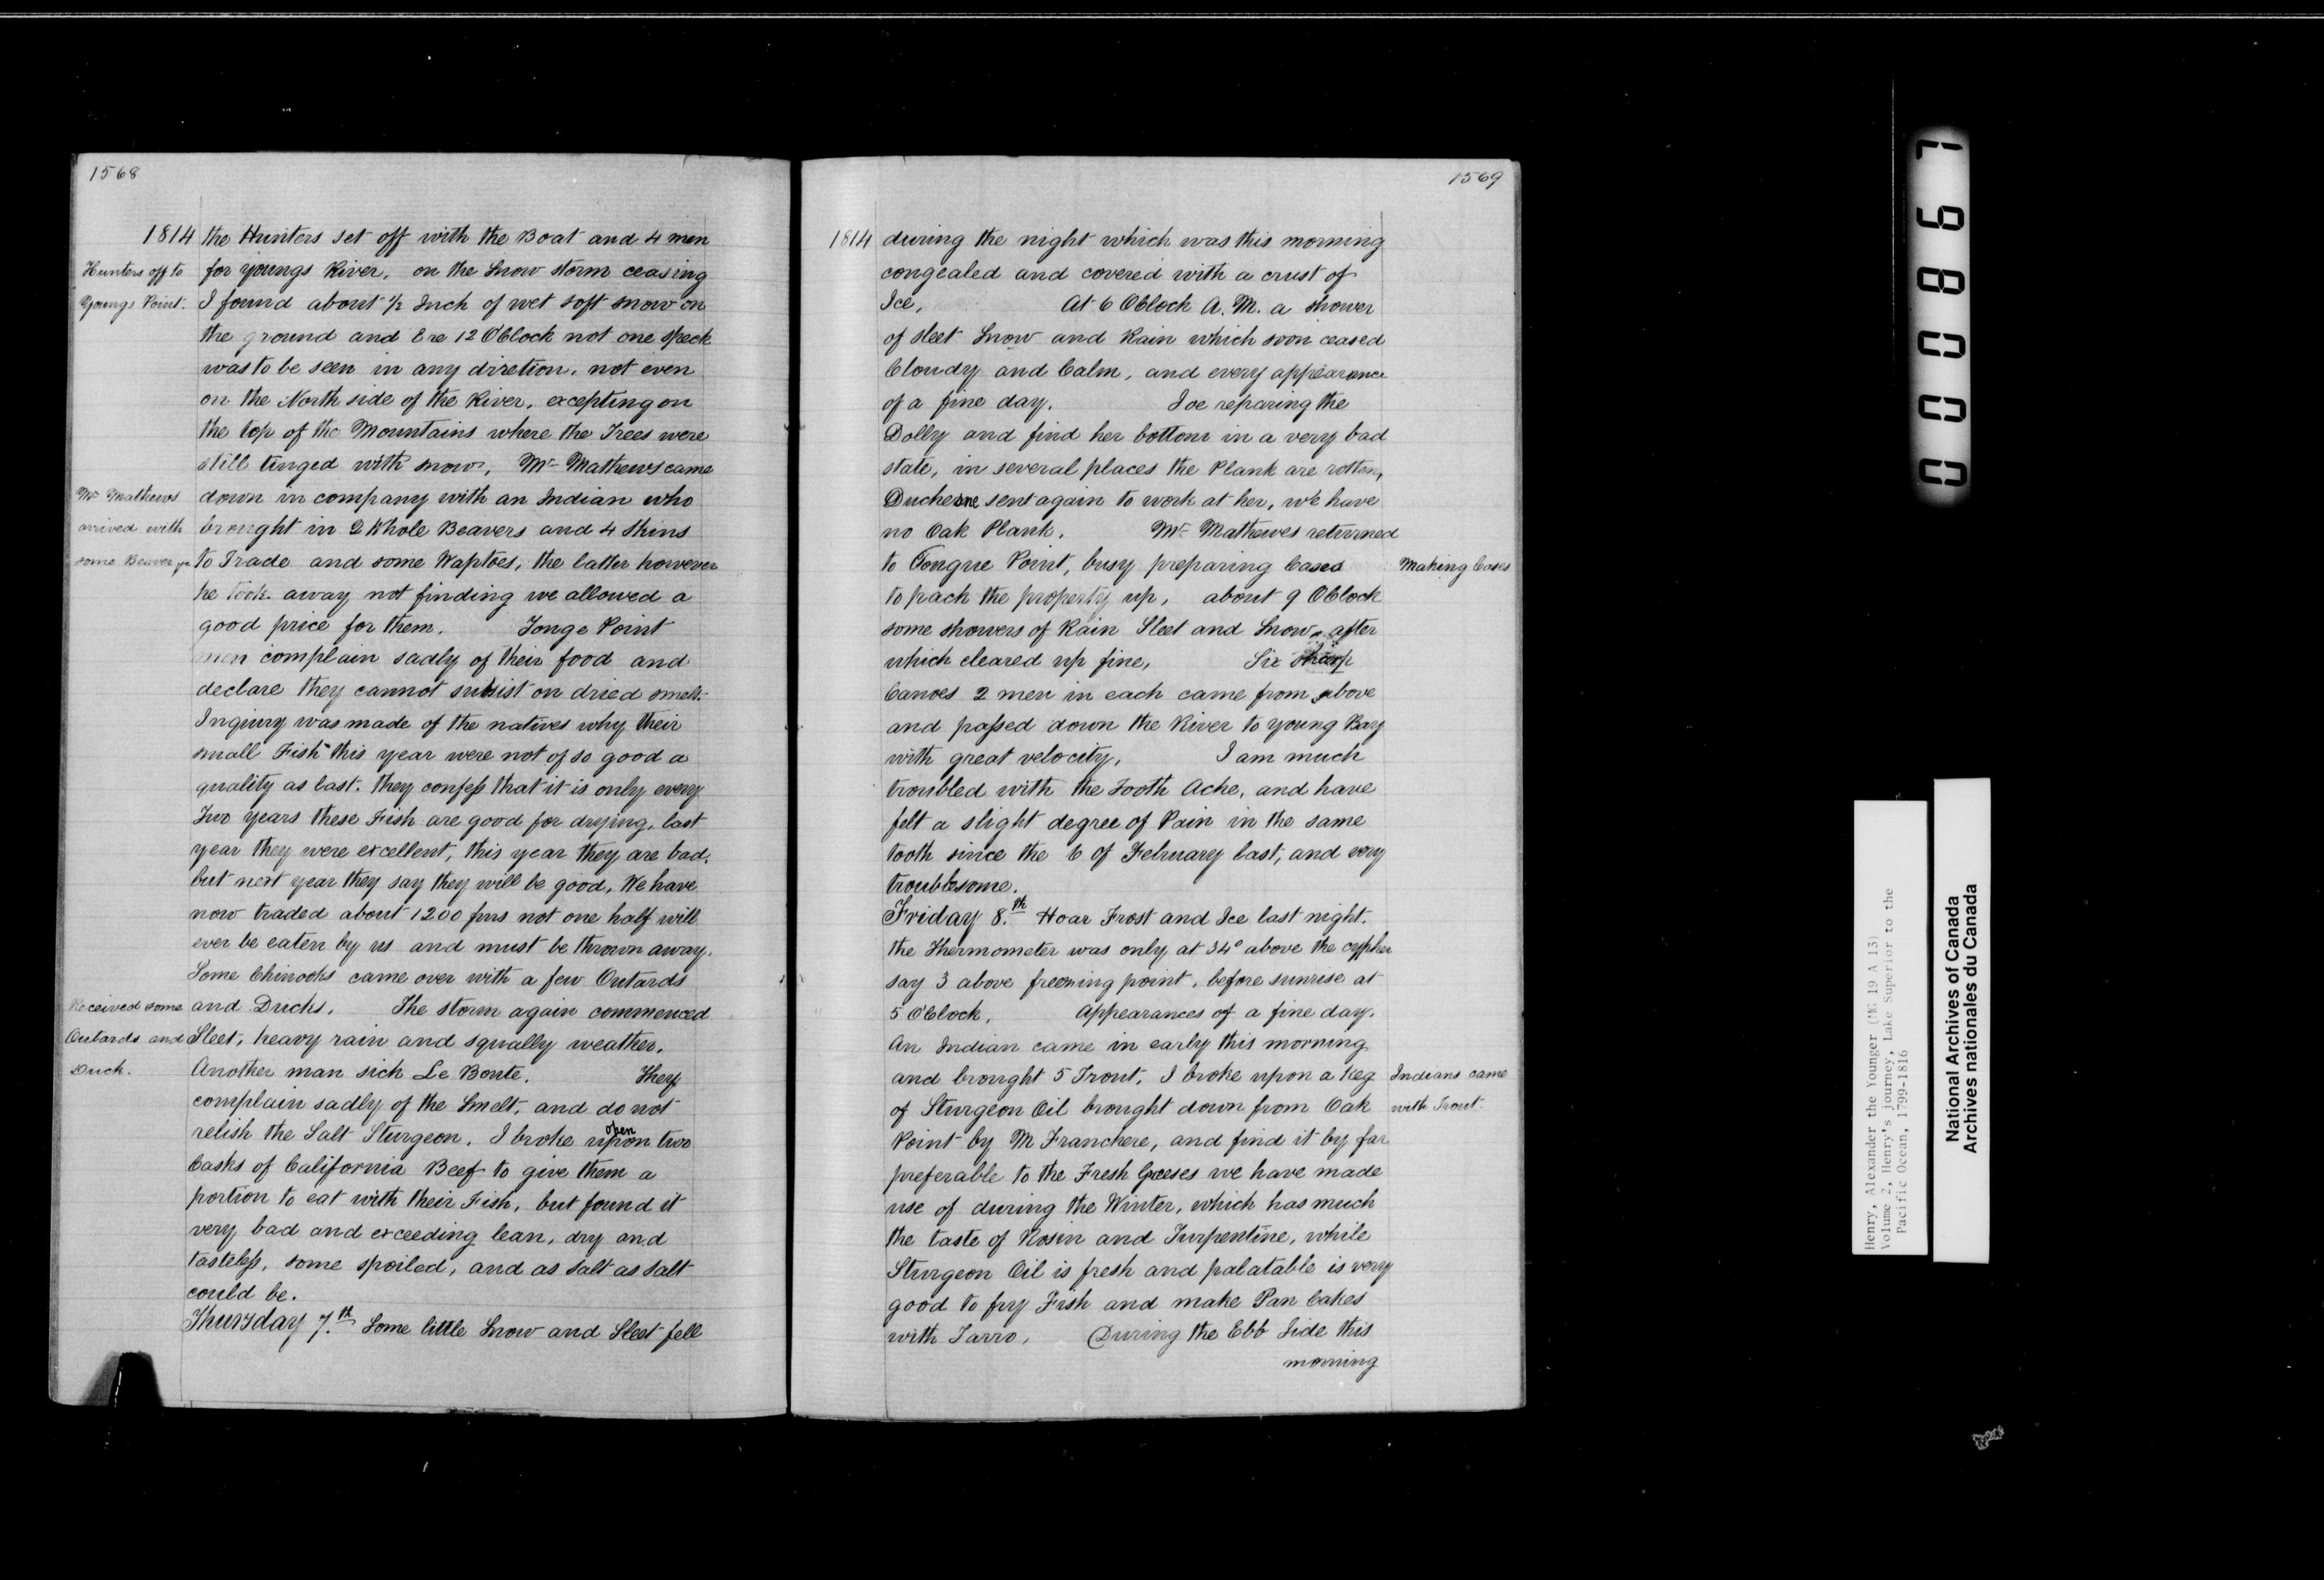 1568
1814 the Hunters set off with the Boat and 4 men
Hunters off to for Youngs River, on the Snow storm ceasing
Youngs Point. I found about 1/2 Inch of wet soft snow on
the ground and Ere 12 OClock not one speck
was to be seen in any diretion, not even
on the North side of the River, excepting on
the top of the Mountains where the Trees were
still tinged with snow, Mr Mathews came
Mr Mathews down in company with an Indian who
arrived with brought in 2 Whole Beavers and 4 Skins
some Beaver to Trade and some Waptoes, the latter however
he took away not finding we allowed a
good price for them. Tonge Point
men complain sadly of their food and
declare they cannot subsist on dried smelt.
Inqiury was made of the natives why their
small Fish this year were not of so good a
quality as last. they confess that it is only every
Two years these Fish are good for drying, last
year they were excellent, this year they are bad,
but next year they say they will be good, We have
now traded about 1200 fms not one half will
ever be eaten by us and must be thrown away.
Some Chinooks came over with a few Outards
Received some and Ducks. The storm again commenced
Outards and Sleet, heavy rain and squally weather.
Duck. Another man sick Le Bonte. They
complain sadly of the Smelt, and do not
relish the Salt Sturgeon. I broke upon two
open
Casks of California Beef to give them a
portion to eat with their Fish, but found it
very bad and exceeding lean, dry and
tasteless, some spoiled, and as salt as salt
could be.
Thursday 7.th Some little Snow and Sleet fell
1569
1814 during the night which was this morning
congealed and covered with a crust of
Ice, At 6 OClock A.M. a shower
of sleet Snow and Rain which soon ceased
Cloudy and Calm, and every appearance
of a fine day. Joe reparing the
Dolly and find her bottom in a very bad
state, in several places the Plank are rotten,
Duchesne sent again to work at her, we have
no Oak Plank. Mr Mathewes returned
to Tongue Point, busy preparing Cases Making Cases
to pack the property up, about 9 OClock
some showers of Rain Sleet and Snow, after
which cleared up fine, Six sharp
Canoes 2 men in each came from above
and passed down the River to Young Bay
with great velocity, I am much
troubled with the Tooth Ache, and have
felt a slight degree of Pain in the same
tooth since the 6 of February last, and very
troublesome.
Friday 8.th Hoar Frost and Ice last night.
the Thermometer was only at 34° above the cypher
say 3 above freezing point, before sunrise at
5 O'Clock, Appearances of a fine day.
An Indian came in early this morning
and brought 5 Trout, I broke upon a Keg Indians came
of Sturgeon Oil brought down from Oak with Trout.
Point by M Franchere, and find it by far
preferable to the Fresh Greeses we have made
use of during the Winter, which has much
the taste of Rosin and Turpentine, while
Sturgeon Oil is fresh and palatable is very
good to fry Fish and make Pan Cakes
with Tarro, During the Ebb Tide this
morning
000867
Henry, Alexander the Younger (MG 19 A 13)
Volume 2, Henry's journey, Lake Superior to the
Pacific Ocean, 1799-1816
National Archives of Canada
Archives nationales du Canada